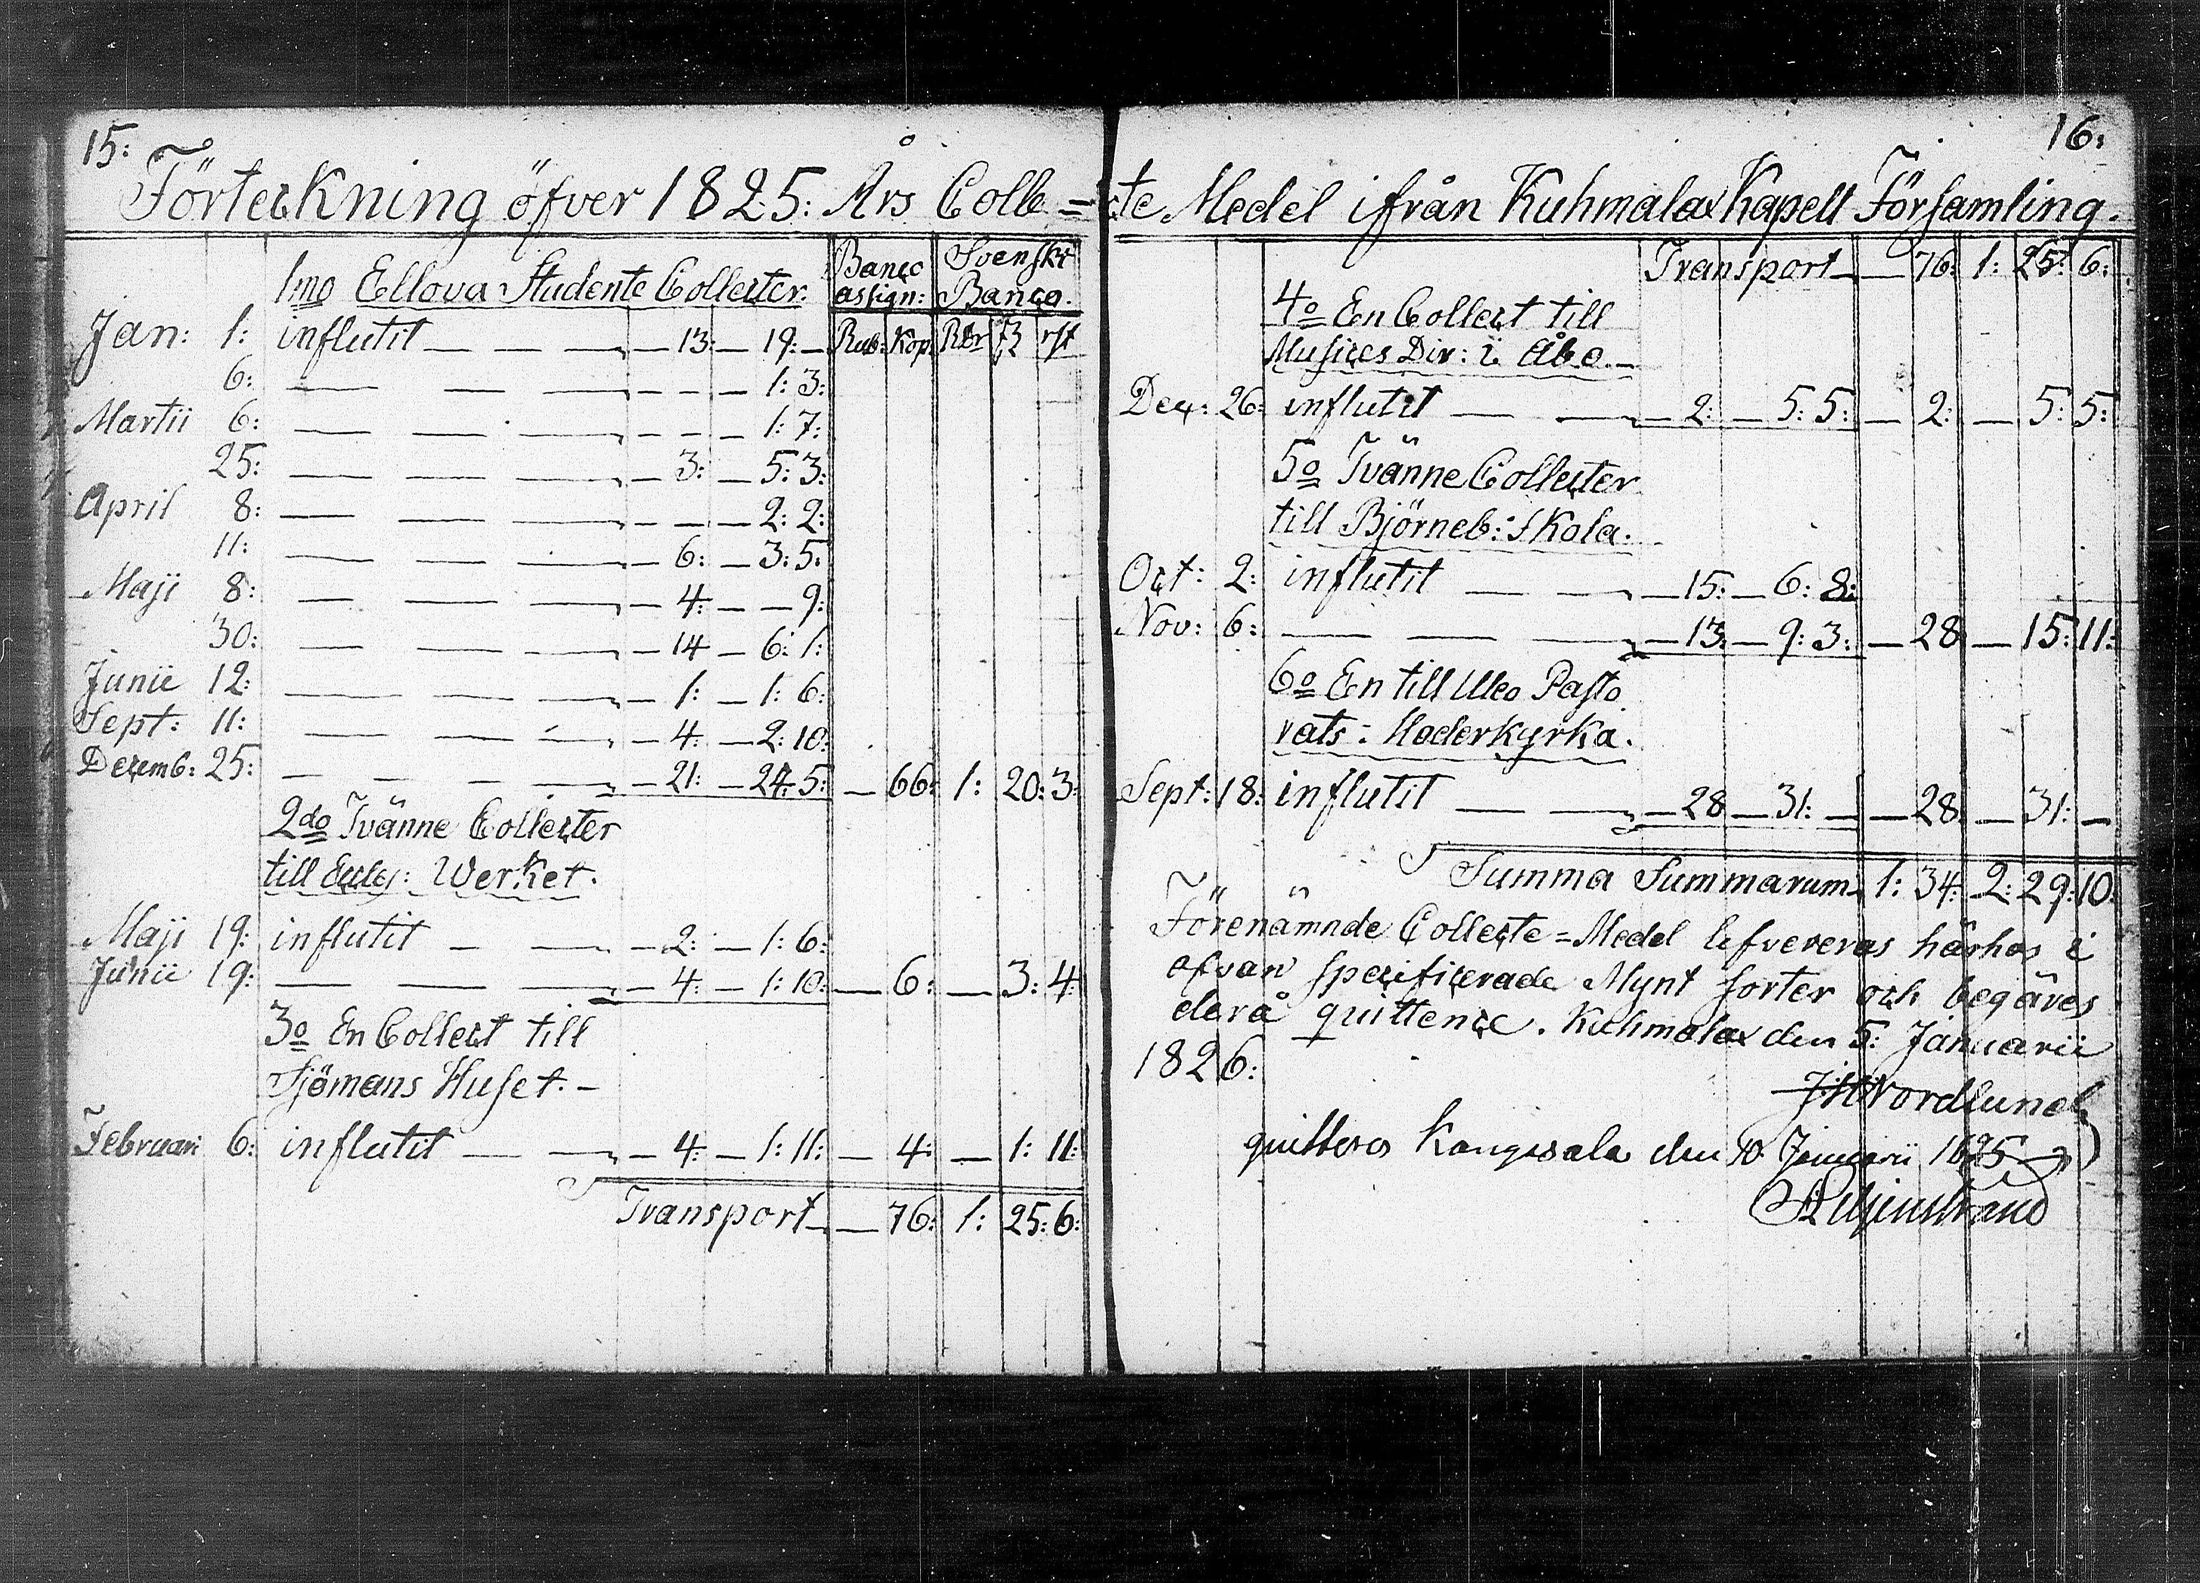 15:
Förteckning öfver 1825: Års Colle=
1mo Ellova Studente Collecter. Banco assign: Svenskt Banco.
Jan: 1: influtit — — — 13: — 19: — Rub: Kop. Rdr ß rst
6: — — — — — 1: 3:
Martii 6: — — — — — 1: 7:
25: — — — — 3: — 5: 3:
April 8: — — — — — 2: 2:
11: — — — — 6: — 3: 5:
Maji 8: — — — — 4: — — 9:
30: — — — — 14 — 6: 1:
Junii 12: — — — — 1: — 1: 6:
Sept: 11: — — — — 4: — 2: 10:
Decemb: 25: — — — — 21: — 24: 5: — 66: 1: 20: 3:
2do Tvänne Collecter
till Eccles: Werket.
Maji 19: influtit — — — 2: — 1: 6:
Junii 19: — — — — 4: — 1: 10: — 6: — 3: 4:
3o En Collect till
Sjömans Huset. —
Februari 6: influtit — — — 4: — 1: 11: — 4: — 1: 11:
Transport — — 76: 1: 25: 6:
16:
cte Medel ifrån Kuhmalax Kapell Församling.
Transport — — 76: 1: 25: 6:
4o En Collect till
Musices Dir: i Åbo. —
Dec: 26: influtit — — — 2: — 5: 5: — 2: — 5: 5:
5o Tvänne Collecter
till Björneb: Skola.
Oct: 2: influtit — — — 15: — 6: 8:
Nov: 6: — — — — 13: — 9: 3: — 28 — 15: 11:
6o En till Uleo Pasto
rats: Moderkyrka.
Sept: 18: influtit — — — 28 — 31: — — 28: — 31: —
Summa Summarum 1: 34: 2: 29: 10:
Förenämnde Collecte=Medel lefvereras härhos i
ofvan specificerade Mynt sorter och begäres
derå quittence. Kuhmalax den 5: Januarii
1826:
JH Nordlund
quitteres Kangasala den 10 Januarii 1825
Liljenstrand